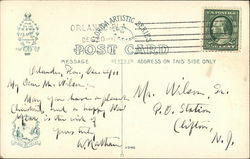 ORLANDO, FLA.
FLORIDA ARTISTIC SERIES
POST CARD
MESSAGE
ADDRESS ON THIS SIDE ONLY
Orlando, Fla., Dec
My Dear Mr. Wilson:-
May you have a pleasant
Christmas and a happy New
Year is the wish of
Yours truly
Mr. Wilson
P.O. Station
Clifton,
N.J.